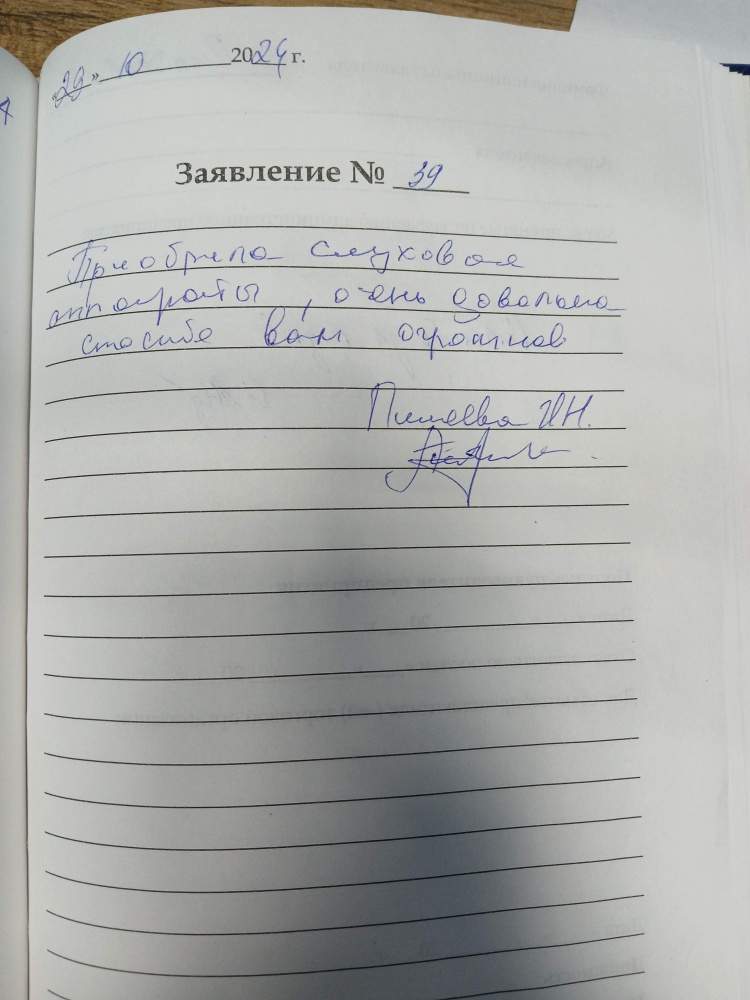 «29» 10 2024 г.
Заявление № 39
Приобрела слуховая
аппараты, очень довольна
спасибо вам огромное
И.Н.